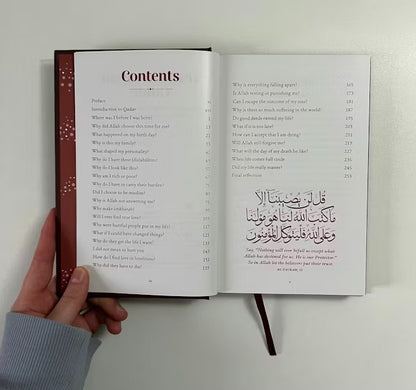 Contents
Preface
Introduction to Qadar
Where was I before I was born?
Why did Allah choose this time for me?
What happened on my birth day?
Why is this my family?
What shaped my personality?
Why do I have these (dis)abilities?
Why do I look like this?
Why am I rich or poor?
Why do I have to carry their burden?
Why did Allah do this to me?
Why is Allah not answering me?
Why make istikharah?
Will I ever find your love?
Why were hurtful people put in my life?
What if I could have changed things?
Why do they get the life I want?
I did not mean to hurt you
How do I find love in loneliness?
Why did they have to die?
Why is everything falling apart? 165
Is Allah testing or punishing me? 173
Can I accept the outcome of my test? 181
Why is there so much suffering in the world?
Do good deeds extend my life?
What if it is too late?
How can I accept that I am dying?
Will Allah still forgive me?
What will the day of my death be like?
When life comes full circle
Did my life really matter?
Final reflection 253
قُل لَّن يُصِيبَنَا إِلَّا
مَا كَتَبَ اللَّهُ لَنَا هُوَ مَوْلَانَا
وَعَلَى اللَّهِ فَلْيَتَوَكَّلِ الْمُؤْمِنُونَ
Say, "Nothing will ever befall us except what
Allah has destined for us. He is our Protector."
So in Allah let the believers put their trust.
AT-TAWBAH, 51